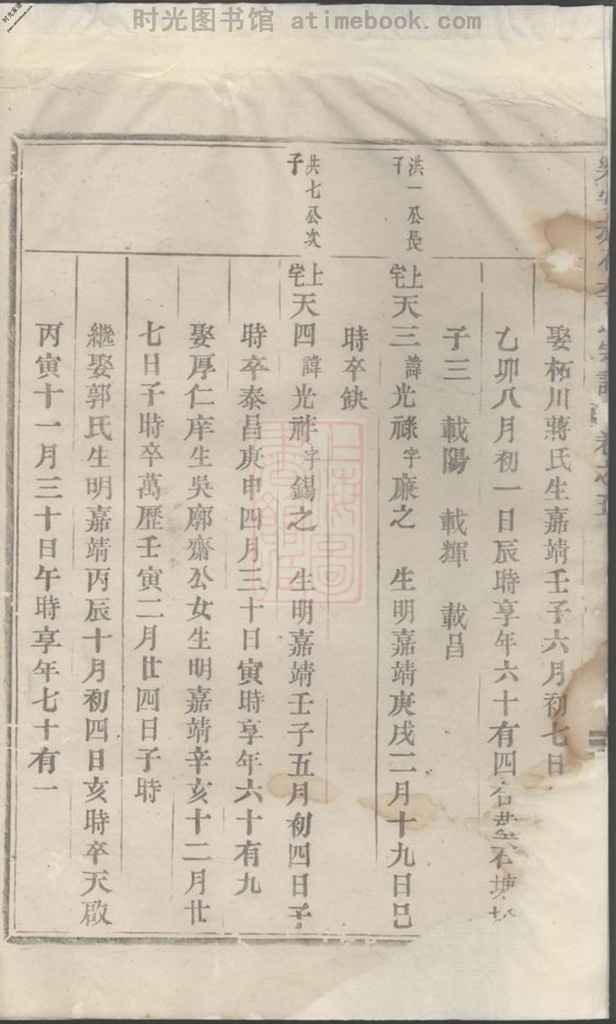 时光图书馆 atimebook.com
娶柘川蔣氏生嘉靖壬子六月初七日
乙卯八月初一日辰時享年六十有四合葬石塘
子三 載陽 載輝 載昌
洪一公長子
上宅天三諱光祿字廉之 生明嘉靖庚戌二月十九日巳
時卒缺
洪七公次子
上宅天四諱光祚字錫之 生明嘉靖壬子五月初四日子
時卒泰昌庚申四月三十日寅時享年六十有九
娶厚仁庠生吳廓齋公女生明嘉靖辛亥十二月廿
七日子時卒萬歷壬寅二月廿四日子時
繼娶郭氏生明嘉靖丙辰十月初四日亥時卒天啟
丙寅十一月三十日午時享年七十有一